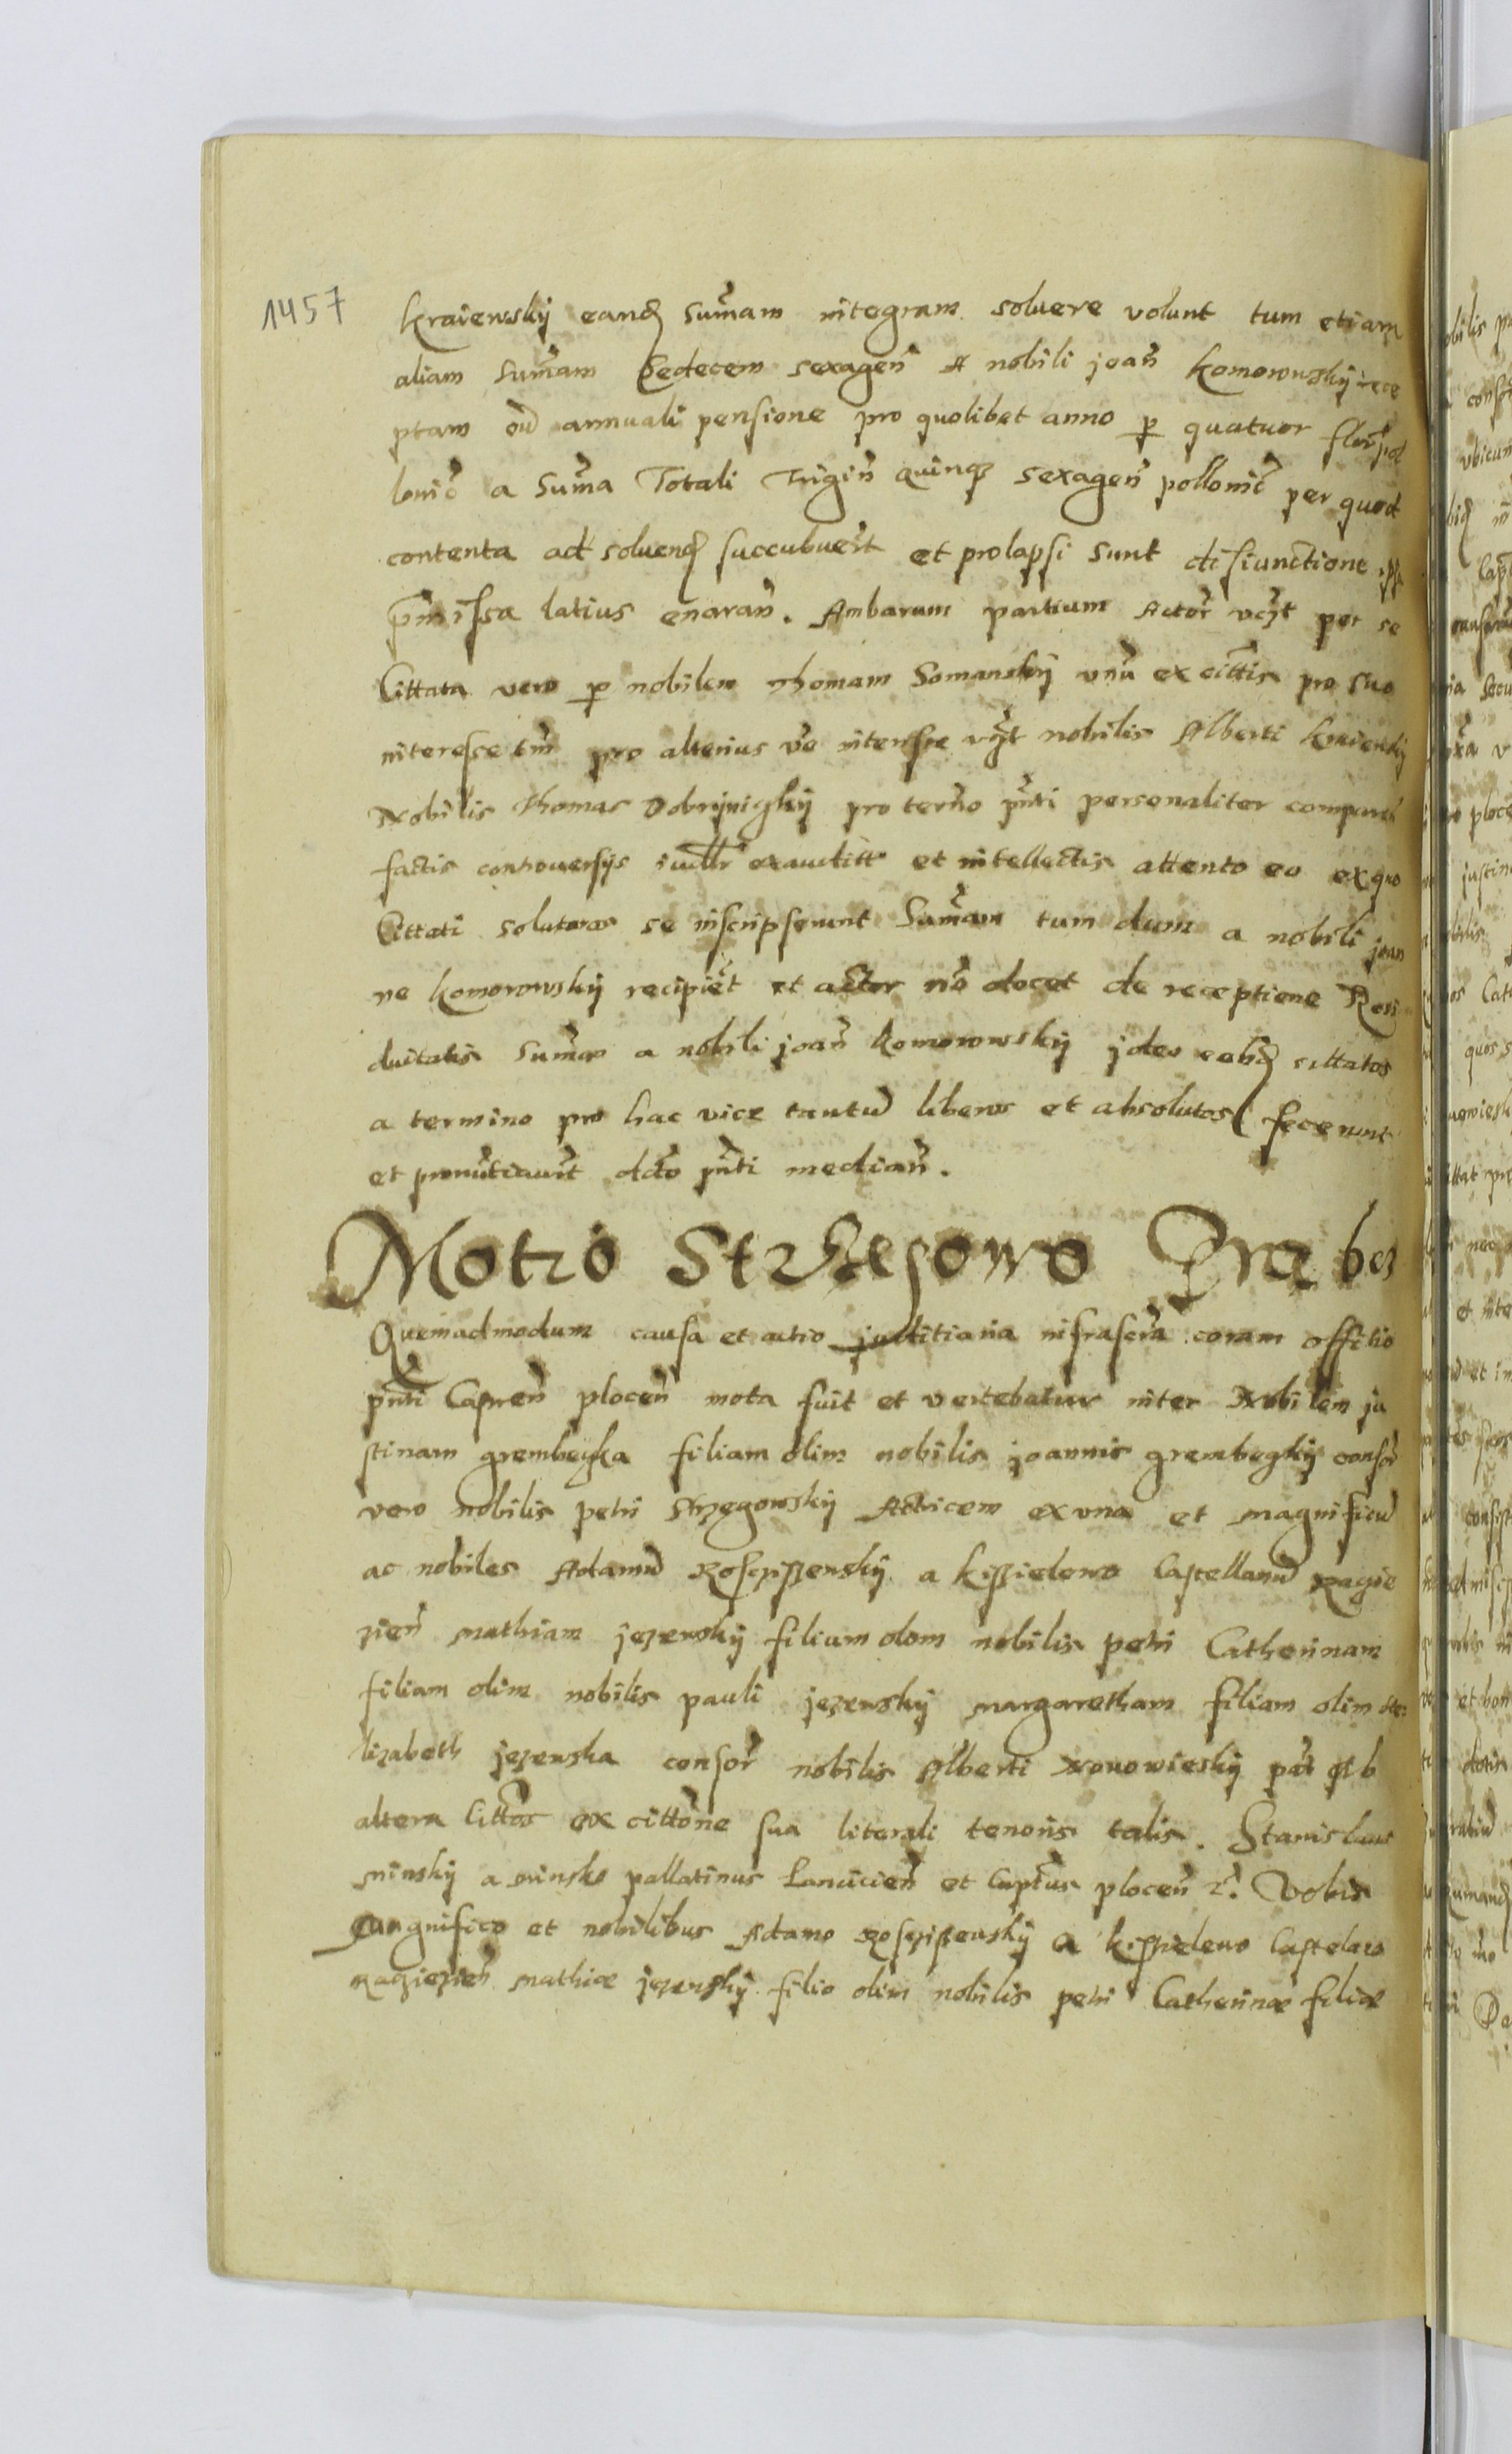 1457
Kraiewskij eand Sum̃am integram soluere volunt tum etiam
aliam Sum̃am Sedecem sexageñ A nobili joañ Komorowskij rece
ptam annuali pensione pro quolibet anno p quatuor flor pol
lonic̃ a Sum̃a Totali Trigiñ quinqȝ sexageñ polloniĉ per quod
contenta ad soluend succubuer̃t et prolapsi sunt disiunctione
p̃missa latius enarañ. Ambarum partium Actor̃ vc̃ȝt per se
Cittata vero p nobilem Thomam Somanskij vnũ ex cittis pro suo
interesse tm̃ pro alterius vo interesse vȝt nobilis Alberti Kraiewskij
Nobilis Thomas Dobrijnighij pro terno pñti personaliter comparen
factis controuersijs exauditt et intellectis attento eo ex quo
Cittati soluturos se inscripserunt Sum̃am tum dum a nobili joan
ne Komorowskij recipiẽt et actor nõ docet de receptione Resi
duitatis Sum̃ae a nobili joañ Komorowskij jdeo eosd cittatos
a termino pro hac vice tantũ liberos et absolutos fecerunt
et pronũtiauer̃t dc̃to pñti mediañ.
Motio Strzegowo
Quemadmodum causa et actio justitiaria infrascr̃a coram offitio
pñti Capneñ ploceñ mota fuit et vertebatur inter Nobilem ju
stinam grembeczka filiam olim nobilis joannis grembeczkij consor̃
vero nobilis petri Strzegowskij Actricem ex vna et magnificũ
ac nobiles Adamũ Rosczissewskij a Kissielewo Castellanũ Raczie
zieñ Mathiam jezewskij filium olim nobilis petri Catherinam
filiam olim nobilis pauli jezewskij margaretham filiam olim
lizabeth jezewska consor̃ nobilis Alberti Nouowieskij par̃t
altera Citt̃os ex citt̃one sua literali tenoris talis. Stanislaus
minskij a minsko pallatinus Lancicieñ et Capt̃us ploceñ Vobis
magnifico et nobilibus Adamo Rosczissewskij a Kissielewo Castelano
Raczieȝieñ Mathiae jezewskij filio olim nobilis petri Catherinae filiae